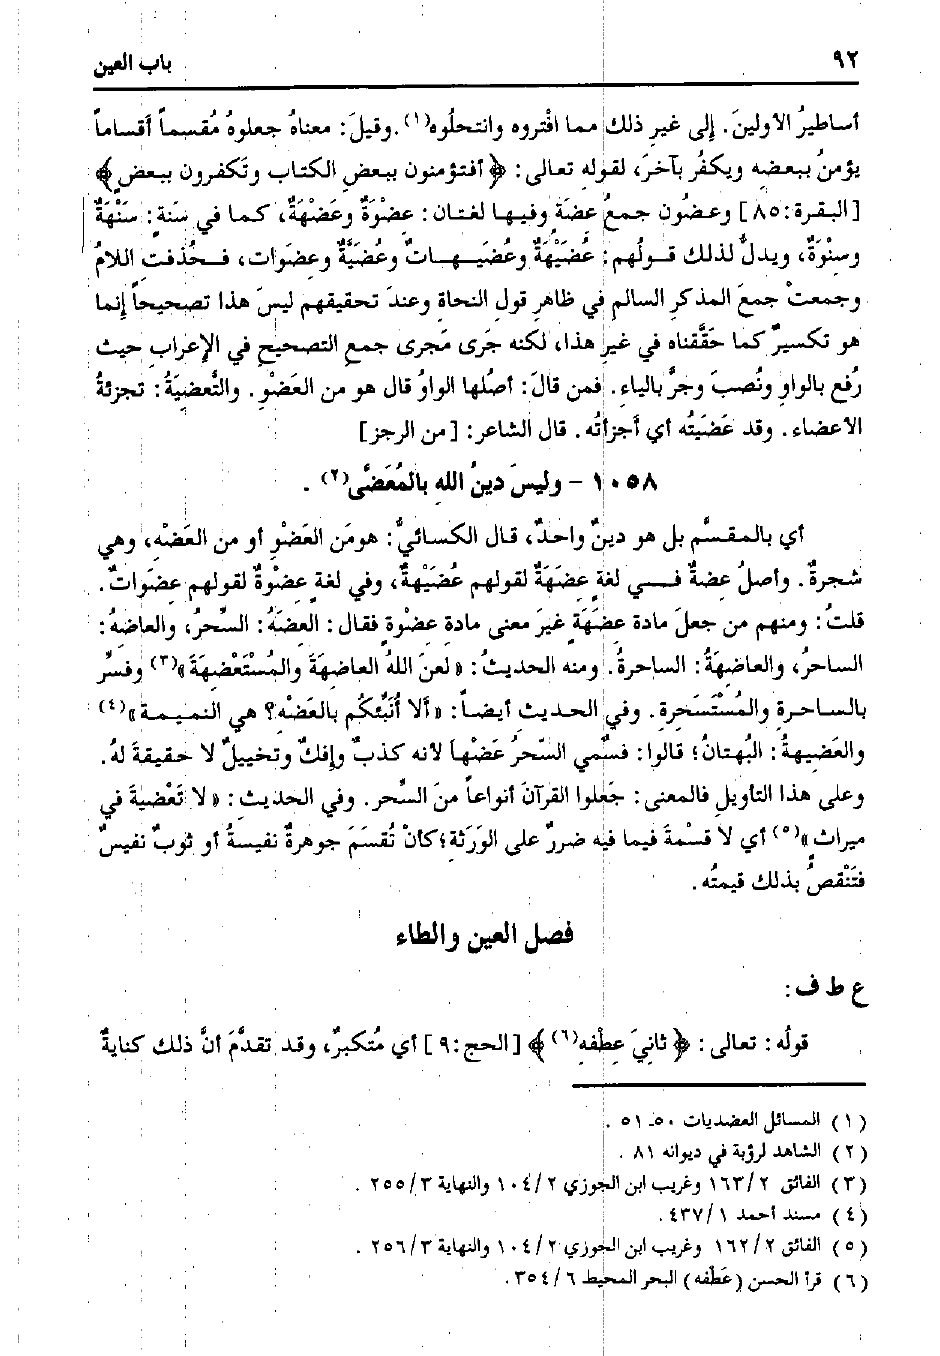 ٩٢ باب العين
أساطيرُ الأولينَ. إلى غيرِ ذلك مما افْتروه وانتحلُوه(١). وقيلَ: معناهُ جعلوهُ مُقسماً أقساماً
يؤمنُ ببعضه ويكفُر بآخرَ، لقوله تعالى: ﴿أفتؤمنون ببعضِ الكتاب وتكفرون ببعضٍ﴾
[البقرة:٨٥] وعضُون جمعُ عضَة وفيها لغتان: عِضْوَةٌ وعَضْهَةٌ، كما في سَنة: سَنْهَةٌ
وسنْوَةٌ، ويدلُّ لذلك قولُهم: عُضَيْهَةٌ وعُضَيهاتٌ وعُضَيَّةٌ وعضَوات، فحُذفت اللامُ
وجمعتْ جمعَ المذكرِ السالم في ظاهرِ قول النحاة وعندَ تحقيقهم ليسَ هذا تصحيحاً إنما
هو تكسيرٌ كما حقَّقناه في غيرِ هذا، لكنه جَرى مَجرى جمعِ التصحيحِ في الإعرابِ حيث
رُفع بالواوِ ونُصبَ وجرَّ بالياءِ. فمن قالَ: أصلُها الواوُ قال هو من العَضْوِ. والتَّعضيَةُ: تجزئةُ
الأعضاء. وقد عَضَيتُه أي أجزأتُه. قال الشاعر: [من الرجز]
١٠٥٨ - وليسَ دينُ اللهِ بالمُعَضَّى(٢) .
أي بالمقسَّم بل هو دينٌ واحدٌ، قال الكسائيُّ: هومَن العَضْوِ أو من العَضْه، وهي
شجرةٌ. وأصلُ عضةٌ في لغةِ عِضَهَةٌ لقولهم عُضَيْهةٌ، وفي لغة عضْوةٌ لقولهم عضَواتٌ.
قلتُ: ومنهم من جعلَ مادة عضَهَة غيرَ معنى مادة عضْوة فقال: العضَهُ: السِّحرُ، والعاضهُ:
الساحرُ، والعاضهَةُ: الساحرةُ. ومنه الحديثُ: «لعنَ اللهُ العاضهَةَ والمُسْتَعْضِهَةَ»(٣) وفسِّر
بالساحرة والمُسْتَسَحرة. وفي الحديث أيضاً: «ألا أُنَبِّئكُم بالعَضْه؟ هي النميمة»(٤)
والعَضيهةُ: البُهتانُ؛ قالوا: فسُمي السِّحرُ عَضْهاً لأنه كذبٌ وإفكٌ وتخييلٌ لا حقيقةَ لهُ.
وعلى هذا التأويل فالمعنى: جَعلوا القرآنَ أنواعاً منَ السِّحر. وفي الحديث: «لا تَعْضيةَ في
ميراث»(٥) أي لا قسْمةَ فيما فيه ضررٌ على الوَرَثةِ؛ كأنْ تُقسَمَ جوهرةٌ نفيسةٌ أو ثوبٌ نفيسٌ
فتَنْقصُ بذلك قيمتُه.
فصل العين والطاء
ع ط ف:
قولُه: تعالى: ﴿ثانيَ عِطْفه(٦)﴾ [الحج:٩] أي مُتكبرٌ، وقد تقدَّمَ أنَّ ذلك كنايةٌ
(١) المسائل العضديات ٥٠ـ٥١ .
(٢) الشاهد لرؤبة في ديوانه ٨١ .
(٣) الفائق ١٦٣/٢ وغريب ابن الجوزي ١٠٤/٢ والنهاية ٢٥٥/٣ .
(٤) مسند أحمد ٤٣٧/١.
(٥) الفائق ١٦٢/٢ وغريب ابن الجوزي ١٠٤/٢ والنهاية ٢٥٦/٣ .
(٦) قرأ الحسن (عَطْفه) البحر المحيط ٣٥٤/٦.